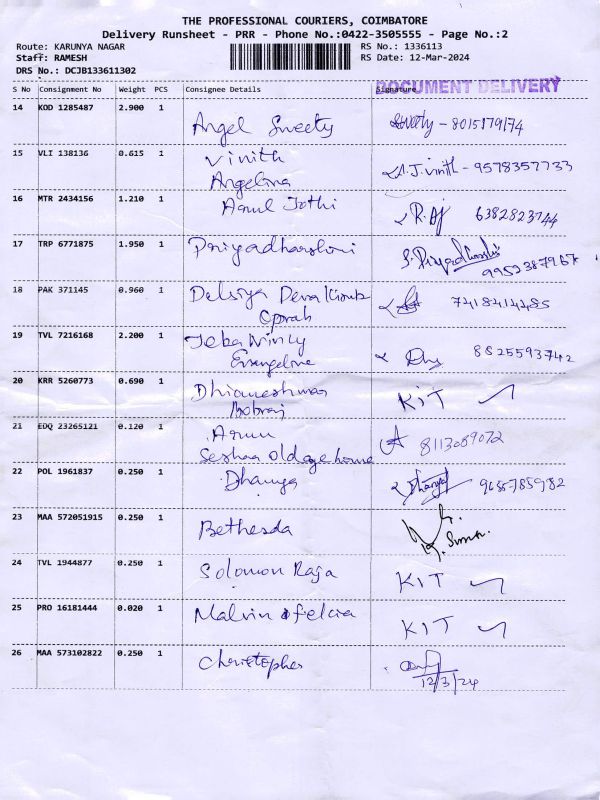 THE PROFESSIONAL COURIERS, COIMBATORE
Delivery Runsheet - PRR - Phone No.:0422-3505555 - Page No.:2
Route: KARUNYA NAGAR RS No.: 1336113
Staff: RAMESH RS Date: 12-Mar-2024
DRS No.: DCJB133611302
DOCUMENT DELIVERY
S No Consignment No Weight PCS Consignee Details Signature
14 KOD 1285487 2.900 1 Angel Sweety Sweety - 8015179174
15 VLI 138136 0.615 1 Vinith
Angelina A.J. vinith - 9578357733
16 MTR 2434156 1.210 1 Arul Jothi R. Aj 6382823744
17 TRP 6771875 1.950 1 Priyadharshini S. Priyadharshini
9952387967
18 PAK 371145 0.960 1 Delsiya Deva 7418414485
19 TVL 7216168 2.200 1 Jeba
Evangeline 8825593742
20 KRR 5260773 0.690 1 KIT
21 EDQ 23265121 0.120 1 Arun
Seshaa Oldage home 8113089072
22 POL 1961837 0.250 1 Dhanya Dhanya
23 MAA 572051915 0.250 1 Bethesda
24 TVL 1944877 0.250 1 Solomon Raja KIT
25 PRO 16181444 0.020 1 Malvin felcia KIT
26 MAA 573102822 0.250 1 Christopher
12/3/24